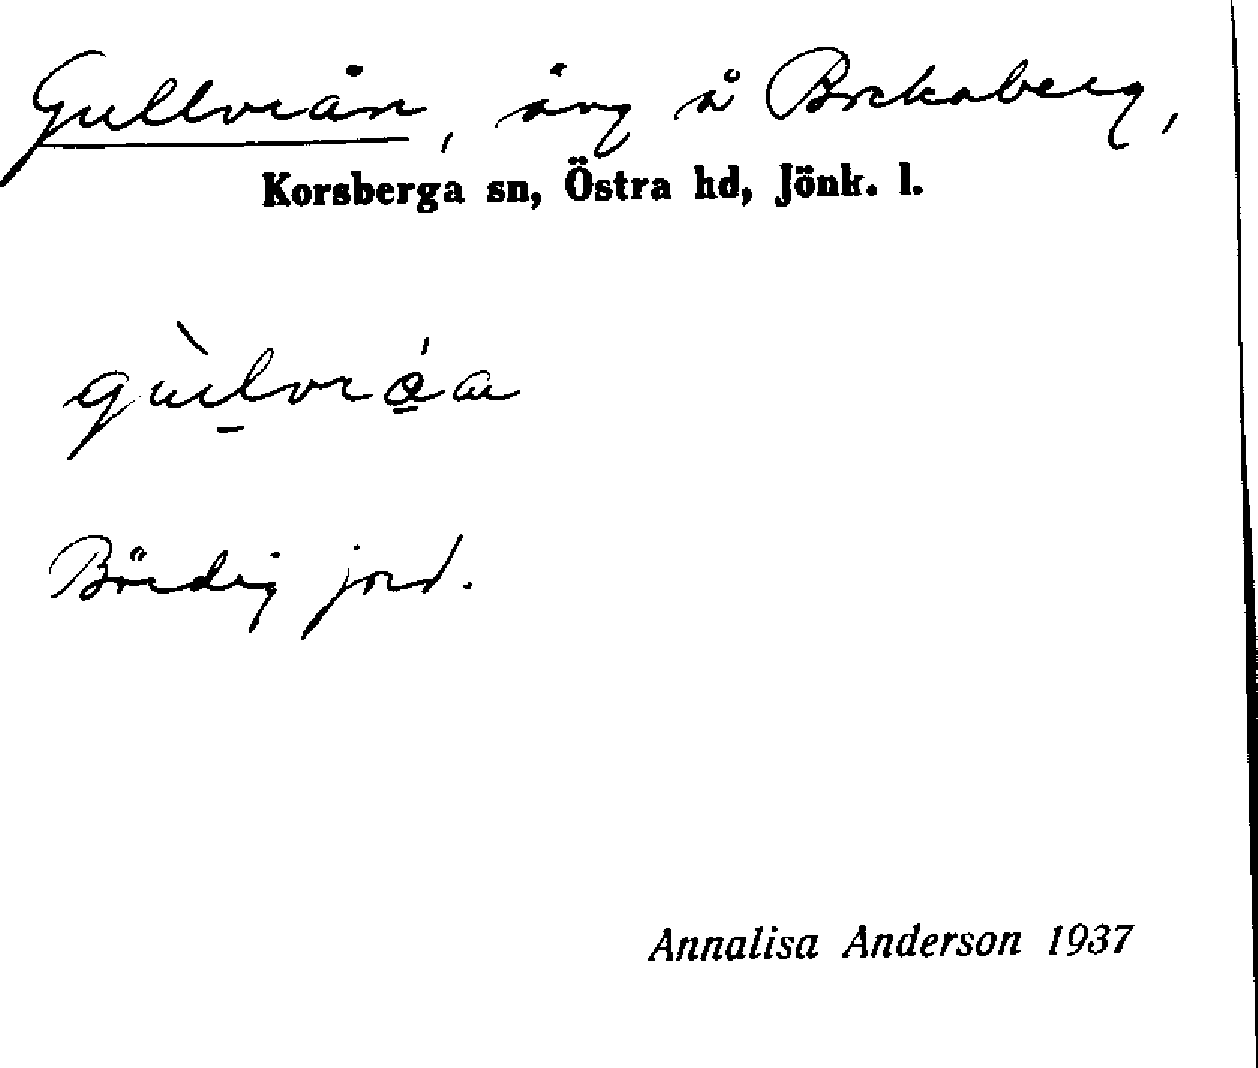 Gullvrån, äng å Brckaberg,
Korsberga sn, Östra hd, Jönk. l.
Bördig jord.
Annalisa Anderson 1937